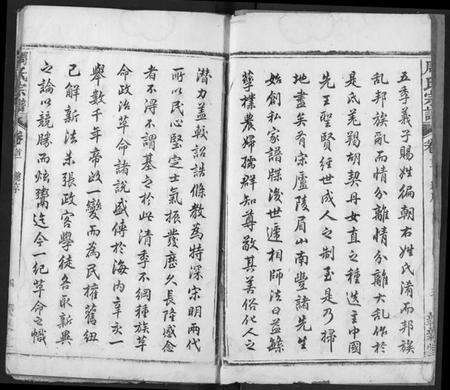 五季義子賜姓編朝右姓氏淆而邦族
亂邦族亂而情分離情分離大亂作於
是氐羌羯胡契丹女直之種迭主中國
先王聖賢經世成人之制至是乃掃
地盡矣有宋廬陵眉山南豐諸先生
始創私家譜牒後世遞相師法曰益縣
孳樸農婦孺群知尊敬其善俗化人之
潛力蓋較詔誥條教為特深宗明兩代
所以民心堅定士氣振發歷久長隆感念
者不得不謂基之於此清季不綱種族革
命政治革命諸說盛傳於海內辛亥一
舉數千年帝政一變而為民權舊紐
已解新法未張政客學徒各取新異
之論以競勝而炫璃迄今一紀革命之幟
周氏宗譜
卷首